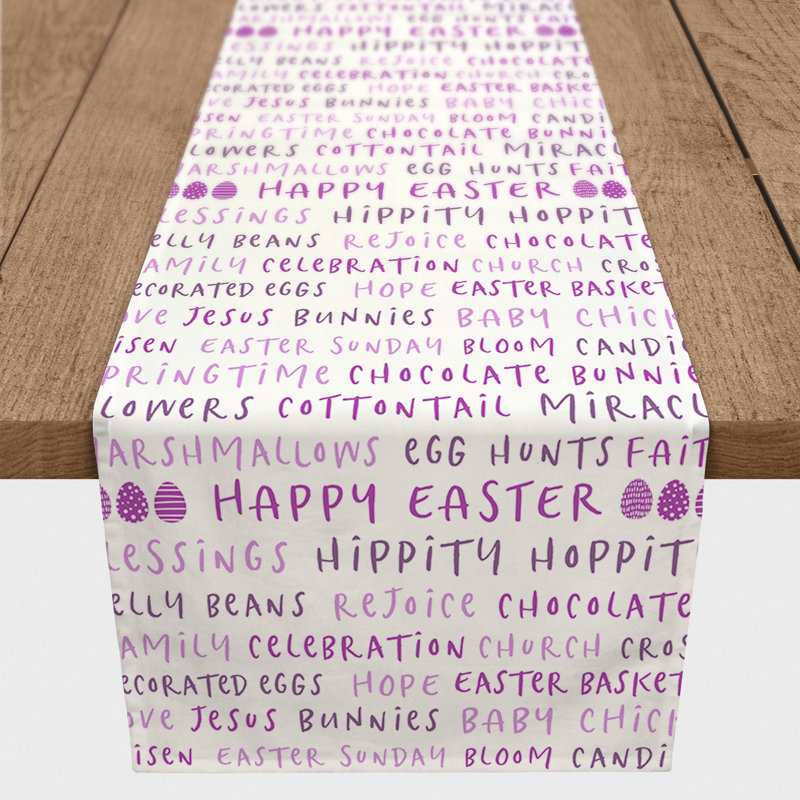 MARSHMALLOWS EGG HUNTS FAIT
HAPPY EASTER
LESSINGS HIPPITY HOPPIT
ELLY BEANS REJOICE CHOCOLATE
FAMILY CELEBRATION CHURCH CROS
DECORATED EGGS HOPE EASTER BASKET
OVE JESUS BUNNIES BABY CHICK
ISEN EASTER SUNDAY BLOOM CANDI
SPRINGTIME CHOCOLATE BUNNIE
LOWERS COTTONTAIL MIRACL
MARSHMALLOWS EGG HUNTS FAIT
HAPPY EASTER
LESSINGS HIPPITY HOPPIT
ELLY BEANS REJOICE CHOCOLATE
FAMILY CELEBRATION CHURCH CROS
ECORATED EGGS HOPE EASTER BASKET
OVE JESUS BUNNIES BABY CHICK
ISEN EASTER SUNDAY BLOOM CANDIE
PRINGTIME CHOCOLATE BUNNIE
LOWERS COTTONTAIL MIRACL
ARSHMALLOWS EGG HUNTS FAIT
HAPPY EASTER
LESSINGS HIPPITY HOPPIT
ELLY BEANS REJOICE CHOCOLATE
AMILY CELEBRATION CHURCH CROS
ECORATED EGGS HOPE EASTER BASKET
OVE JESUS BUNNIES BABY CHICK
ISEN EASTER SUNDAY BLOOM CANDI